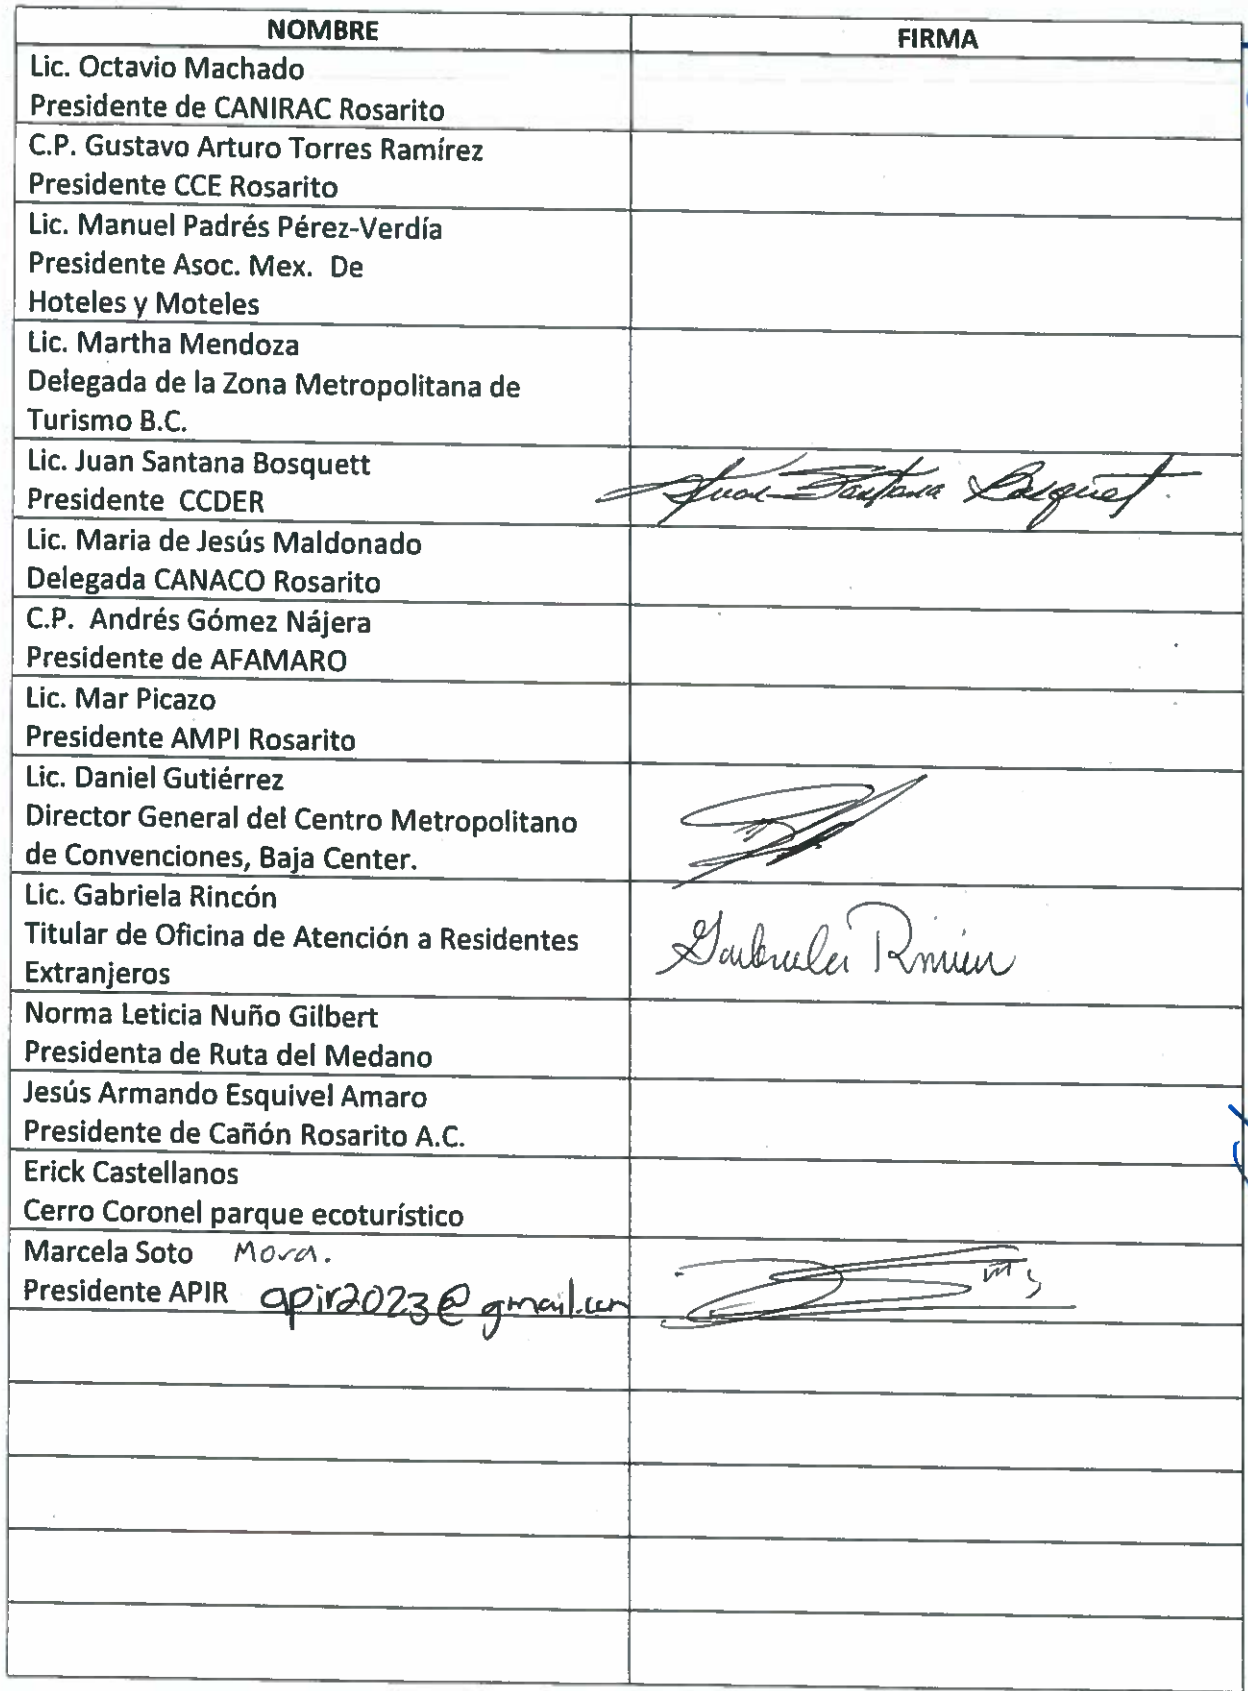 NOMBRE FIRMA
Lic. Octavio Machado
Presidente de CANIRAC Rosarito
C.P. Gustavo Arturo Torres Ramírez
Presidente CCE Rosarito
Lic. Manuel Padrés Pérez-Verdía
Presidente Asoc. Mex. De
Hoteles y Moteles
Lic. Martha Mendoza
Delegada de la Zona Metropolitana de
Turismo B.C.
Lic. Juan Santana Bosquett
Presidente CCDER
Juan Santana Bosquet
Lic. Maria de Jesús Maldonado
Delegada CANACO Rosarito
C.P. Andrés Gómez Nájera
Presidente de AFAMARO
Lic. Mar Picazo
Presidente AMPI Rosarito
Lic. Daniel Gutiérrez
Director General del Centro Metropolitano
de Convenciones, Baja Center.
Lic. Gabriela Rincón
Titular de Oficina de Atención a Residentes
Extranjeros
Gabriela Rincón
Norma Leticia Nuño Gilbert
Presidenta de Ruta del Medano
Jesús Armando Esquivel Amaro
Presidente de Cañón Rosarito A.C.
Erick Castellanos
Cerro Coronel parque ecoturístico
Marcela Soto Mora.
Presidente APIR apir2023@gmail.com